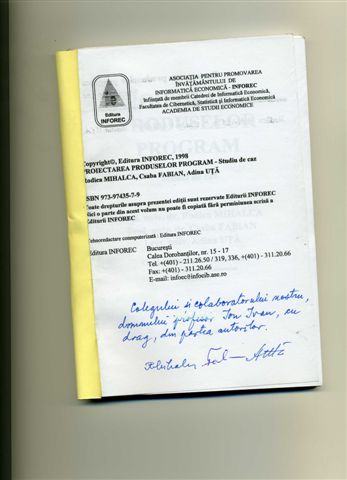 ASOCIAŢIA PENTRU PROMOVAREA
ÎNVĂŢĂMÂNTULUI DE
INFORMATICĂ ECONOMICĂ - INFOREC
Înfiinţată de membrii Catedrei de Informatică Economică,
Facultatea de Cibernetică, Statistică şi Informatică Economică
ACADEMIA DE STUDII ECONOMICE
Editura
INFOREC
PRODUSELOR
PROGRAM
Copyright©, Editura INFOREC, 1998
PROIECTAREA PRODUSELOR PROGRAM - Studiu de caz
Rodica MIHALCA, Csaba FABIAN, Adina UŢĂ
ISBN 973-97435-7-9
Toate drepturile asupra prezentei ediţii sunt rezervate Editurii INFOREC
Nici o parte din acest volum nu poate fi copiată fără permisiunea scrisă a
Editurii INFOREC
Tehnoredactare coomputerizată : Editura INFOREC
Editura INFOREC
Bucureşti
Calea Dorobanţilor, nr. 15 - 17
Tel. +(401) - 211.26.50 / 319, 336, +(401) - 311.20.66
Fax: +(401) - 311.20.66
E-mail: infoec@infocib.ase.ro
Colegului si colaboratorului nostru,
domnului profesor Ion Ivan, cu
drag, din partea autorilor.